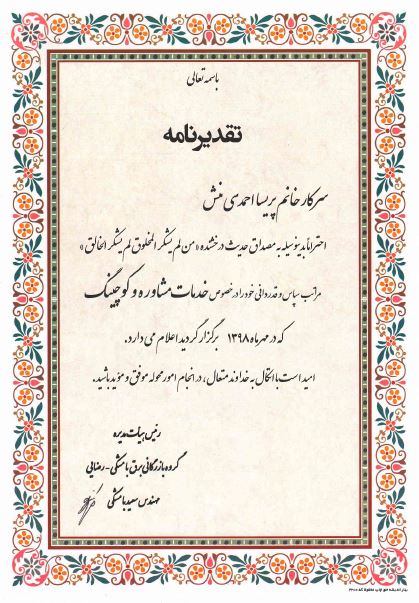 باسمه تعالی
تقدیرنامه
سرکار خانم پریسا احمدی منش
احتراما بدینوسیله به مصداق حدیث درخشنده «من لم یشکر المخلوق لم یشکر الخالق»
مراتب سپاس و قدردانی خود را در خصوص خدمات مشاوره و کوچینگ
که در مهر ماه ۱۳۹۸ برگزار گردید اعلام می دارد.
امید است با اتکال به خداوند متعال، در انجام امور محوله موفق و موید باشید.
رئیس هیات مدیره
گروه بازرگانی برق بامشکی - رضایی
مهندس سعید بامشکی